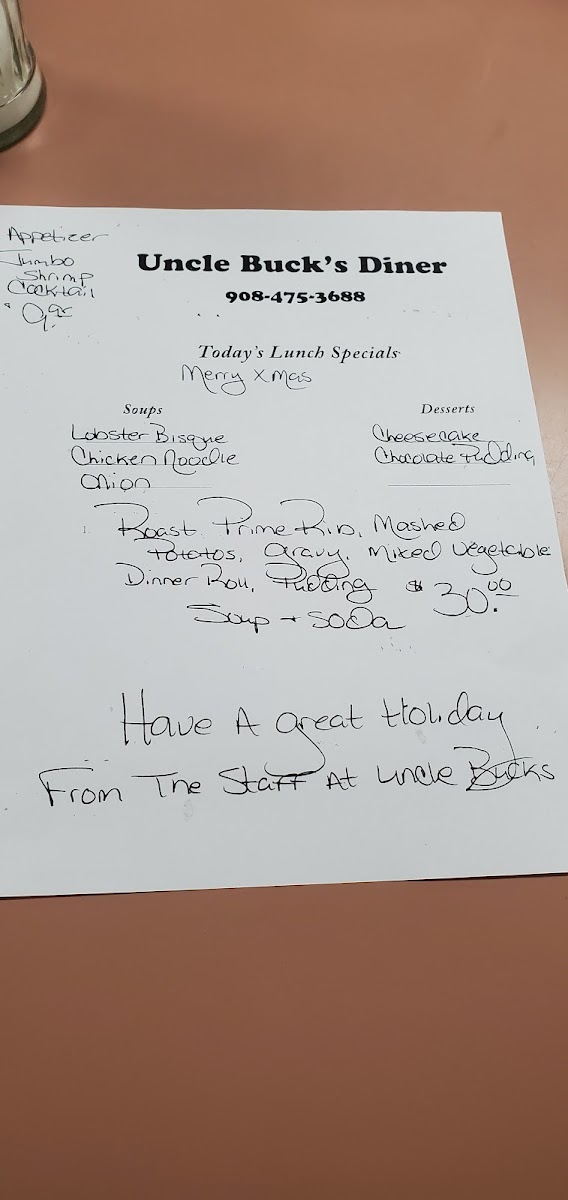 Appetizer
Jumbo
Shrimp
Cocktail
$9.95
Uncle Buck's Diner
908-475-3688
Today's Lunch Specials
Merry Xmas
Soups
Lobster Bisque
Chicken Noodle
Onion
Desserts
Cheesecake
Chocolate Pudding
1. Roast Prime Rib, Mashed
Potatos, gravy, Mixed Vegetable
Dinner Roll, Pudding $30.00
Soup + Soda
Have A great Holiday
From The Staff At Uncle Bucks